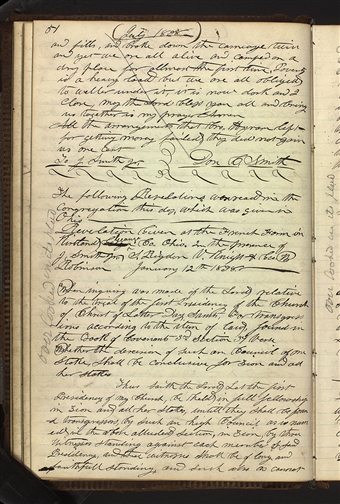 51 July 1838
and fills, and broke down the carriage twice
and yet we are all alive and camped on a
dry place for almost the first time. Poverty
is a heavy load but we are all obliged
to welter under it, it is now dark and I
close, may the Lord bless you all and bring
us together is my prayer Amen
All the arrangements that Bro. Hyrum left
for getting money failed, they did not gain
us one cent
To J. Smith Jr. Don C. Smith
The following Revelations were read in the
Congregation this day, which was given in
Ohio
Revelation Given at the French Farm in
Kirtland Geauga Co. Ohio. In the presence of
J. Smith Jr., S. Rigdon V. Knight & Geo. W.
Robinson January 12th 1838.
When inquiry was made of the Lord relative
to the trial of the first Presidency of the Church
of Christ of Latter Day Saints, For transgressions
according to the item of law, found in
the Book of Covenants 3rd Section 37 Verse
Whether the decision of such an Council of one
Stake, shall be conclusive for Zion and all
her stakes
Thus saith the Lord Let the first
Presidency of my Church, be held in full fellowship
in Zion and all her stakes, until they shall be found
transgressors, by such an high Council as is named
in the above alluded section, in Zion, by three
witnesses standing against each member of said
Presidency, and these witnesses shall be of long and
faithfull standing, and such also as cannot